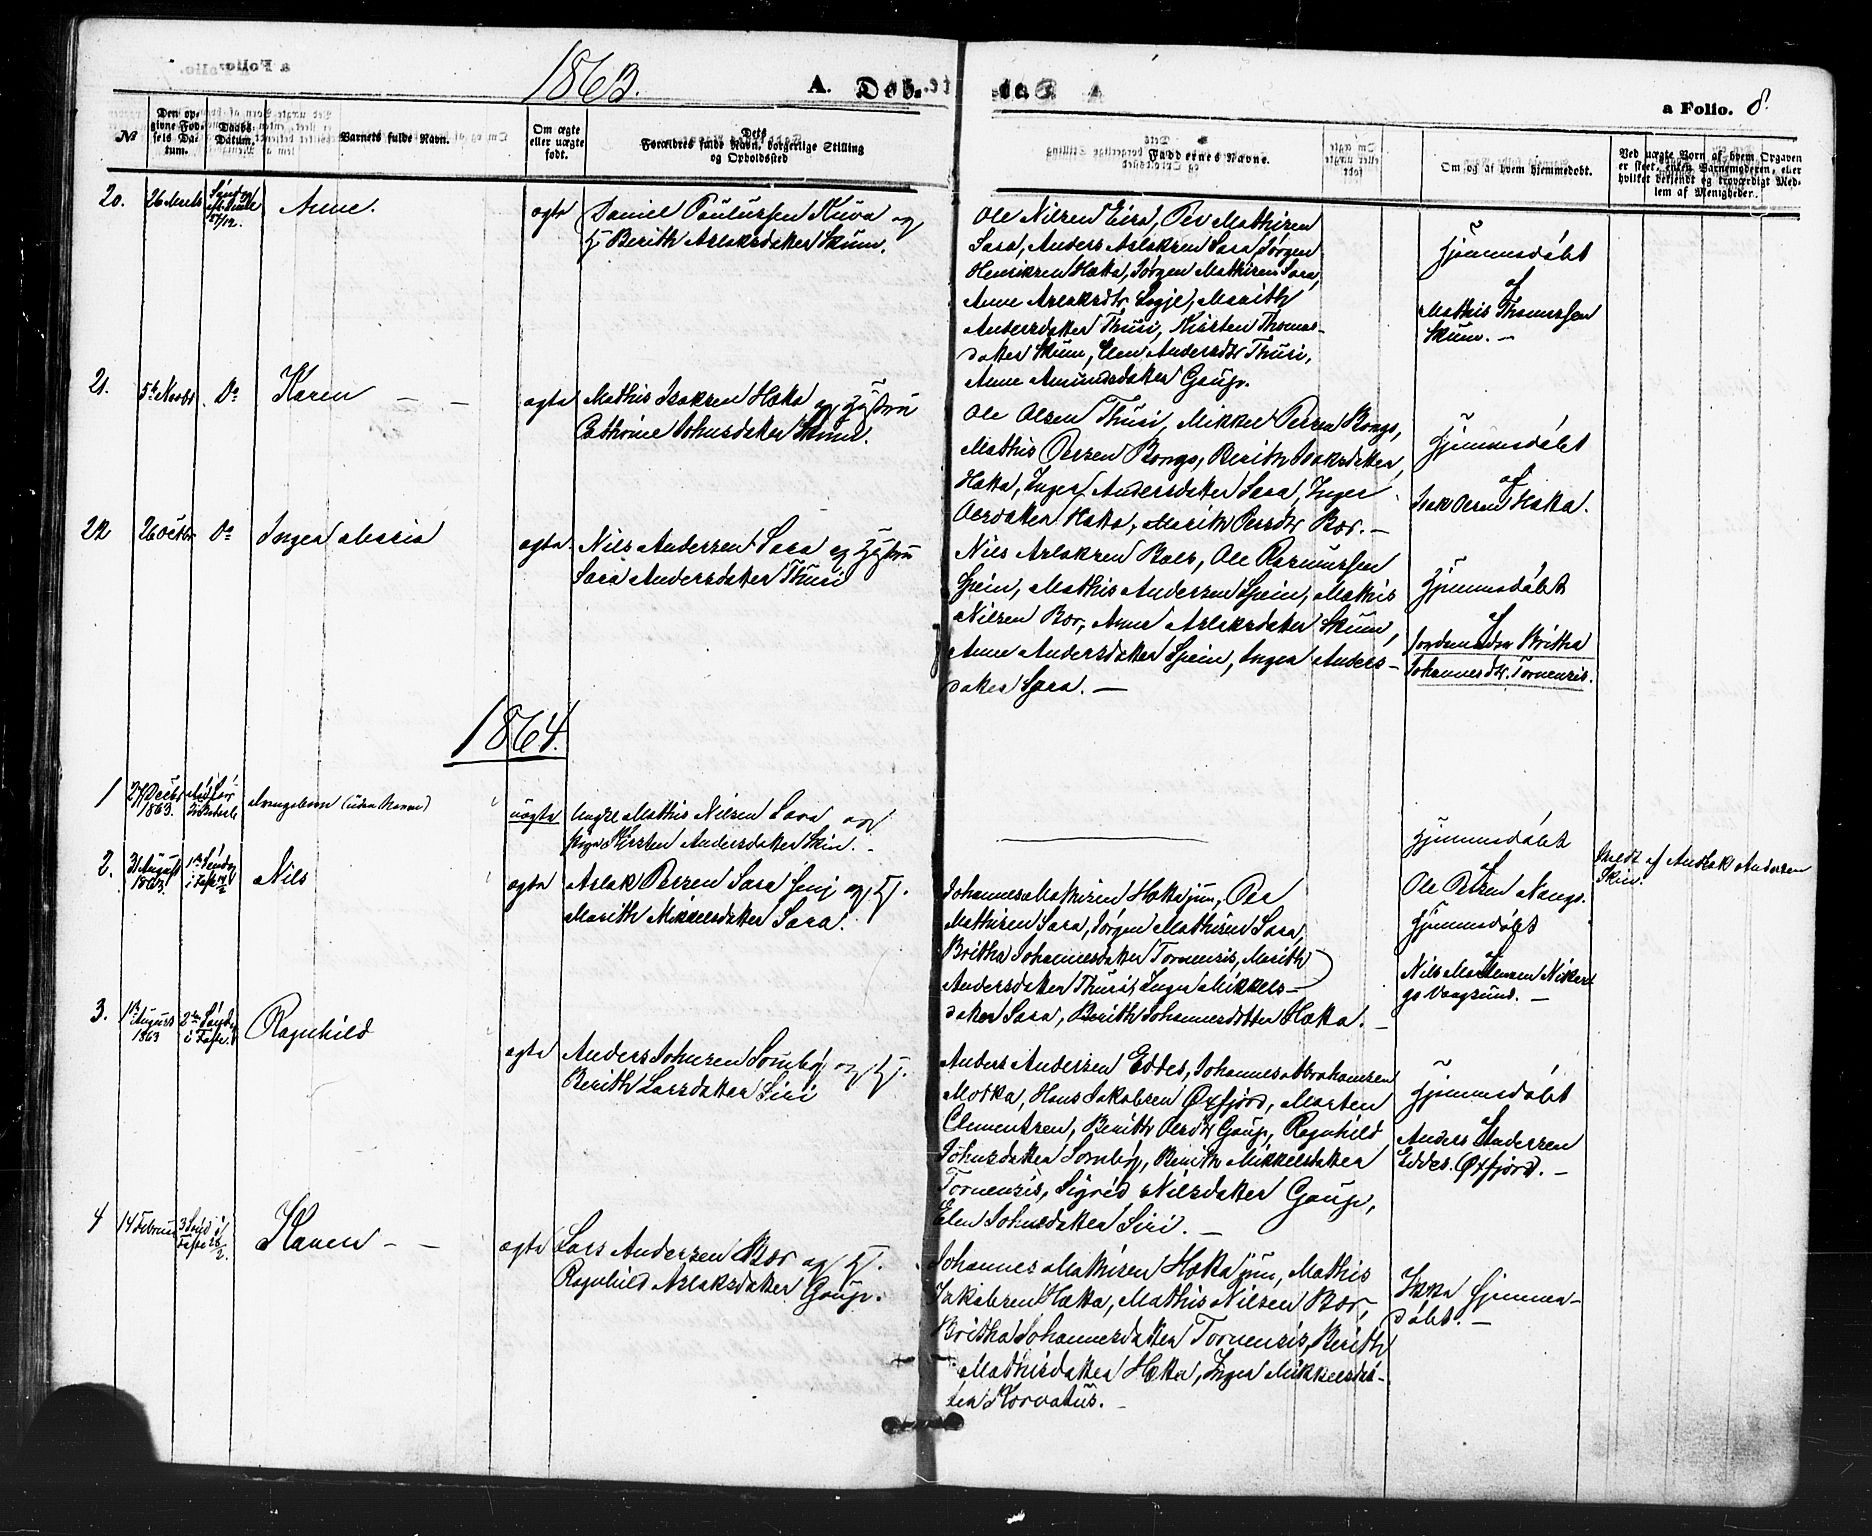 1863.
A. Døb.
a Folio. 8.
No
Den opgivne Fødsels Datum.
Daabs Datum.
Barnets fulde Navn.
Om ægte eller uægte født.
Dets Forældres fulde Navn, borgerlige Stilling og Opholdssted
Faddernes Navne.
Om og af hvem hjemmedøbt.
Ved uægte Børn af hvem Opgaven
er skeet, enten Barnemoderen, eller
hvilket bekjendt og troværdigt Med-
lem af Menigheden.
20.
27/12.
Anne.
ægte
Daniel Paulussen Kuva og
Hj Berith Aslaksdatter Skum.
Ole Nilsen Eira, Per Mathisen
Sara, Anders Aslaksen Sara, Jørgen
Henriksen Hætta, Jørgen Mathisen Sara,
Anne Aslaksdtr Logje, Marith
Andersdatter Thuri, Kirsten Thomas-
datter Skum, Elen Andersdtr Thuri,
Anne Amundsdatter Gaup.
Hjemmedøbt
af
Mathis Thomassen
Skum. —
21.
5te Novbr
Do
Karen — —
ægte
Mathis Isaksen Hætta og Hustru
Cathrine Johnsdatter Skum.
Ole Olsen Thuri, Mikkel Persen Bongo,
Mathis Persen Bongo, Berith Isaksdatter
Hætta, Inger Andersdatter Sara, Inger
Persdatter Hætta, Marith Persdtr Bær. —
Hjemmedøbt
af
Isak Persen Hætta.
22
26 Octbr
Do
Inger Maria
ægte
Nils Andersen Sara og Hustru
Sara Andersdatter Thuri
Nils Aslaksen Bals, Ole Rasmussen
Spein, Mathis Andersen Spein, Mathis
Nilsen Bær, Anne Aslaksdatter Skum,
Anne Andersdatter Spein, Inger Anders-
datter Sara. —
Hjemmedøbt
af
Jordemoder Britha
Johannesdtr. Tornensis.
1864.
1
27 Decbr
1863.
Drengebarn (uden Navn)
uægte
Ungkl Mathis Nilsen Sara og
Pige Kirsten Andersdatter Skin. -
Hjemmedøbt
af
Ole Petersen Nango.
Meldt af Anslak Andersen
Skin.
2.
31 August
1863.
1te Søndag
i Faste 14/2
Nils
ægte
Aslak Persen Sara Senj og Hj.
Marith Mikkelsdatter Sara.
Johannes Mathisen Hætta jun, Per
Mathisen Sara, Jørgen Mathisen Sara,
Britha Johannesdatter Tornensis, Marith
Andersdatter Thuri, Inger Mikkels-
datter Sara, Berith Johannesdatter Hætta. —
Hjemmedøbt
af
3.
1te August
1863
2den Søndag
i Faste.
Ragnhild
ægte
Anders Johnsen Somby og Hj.
Berith Larsdatter Siri
Anders Andersen Eddes, Johannes Abrahamsen
Motka, Hans Jakobsen Øxfjord, Morten
Clementsen, Berith Persdtr Gaup, Ragnhild
Johnsdatter Somby, Berith Mikkelsdatter
Tornensis, Sigrid Nilsdatter Gaup,
Elen Johnsdatter Siri. —
Hjemmedøbt
Anders Andersen
Eddes. Øxfjord. —
4
14 Februar
3 Sønd i
Faste 28/2.
Karen — —
ægte
Lars Andersen Bær og Hj.
Ragnhild Aslaksdatter Gaup.
Johannes Mathisen Hætta jun, Mathis
Jakobsen Hætta, Mathis Nilsen Bær,
Britha Johannesdatter Tornensis, Berith
Mathisdatter Hætta, Inger Mikkelsdat-
ter Korvatus. —
Ikke hjemme-
døbt. —